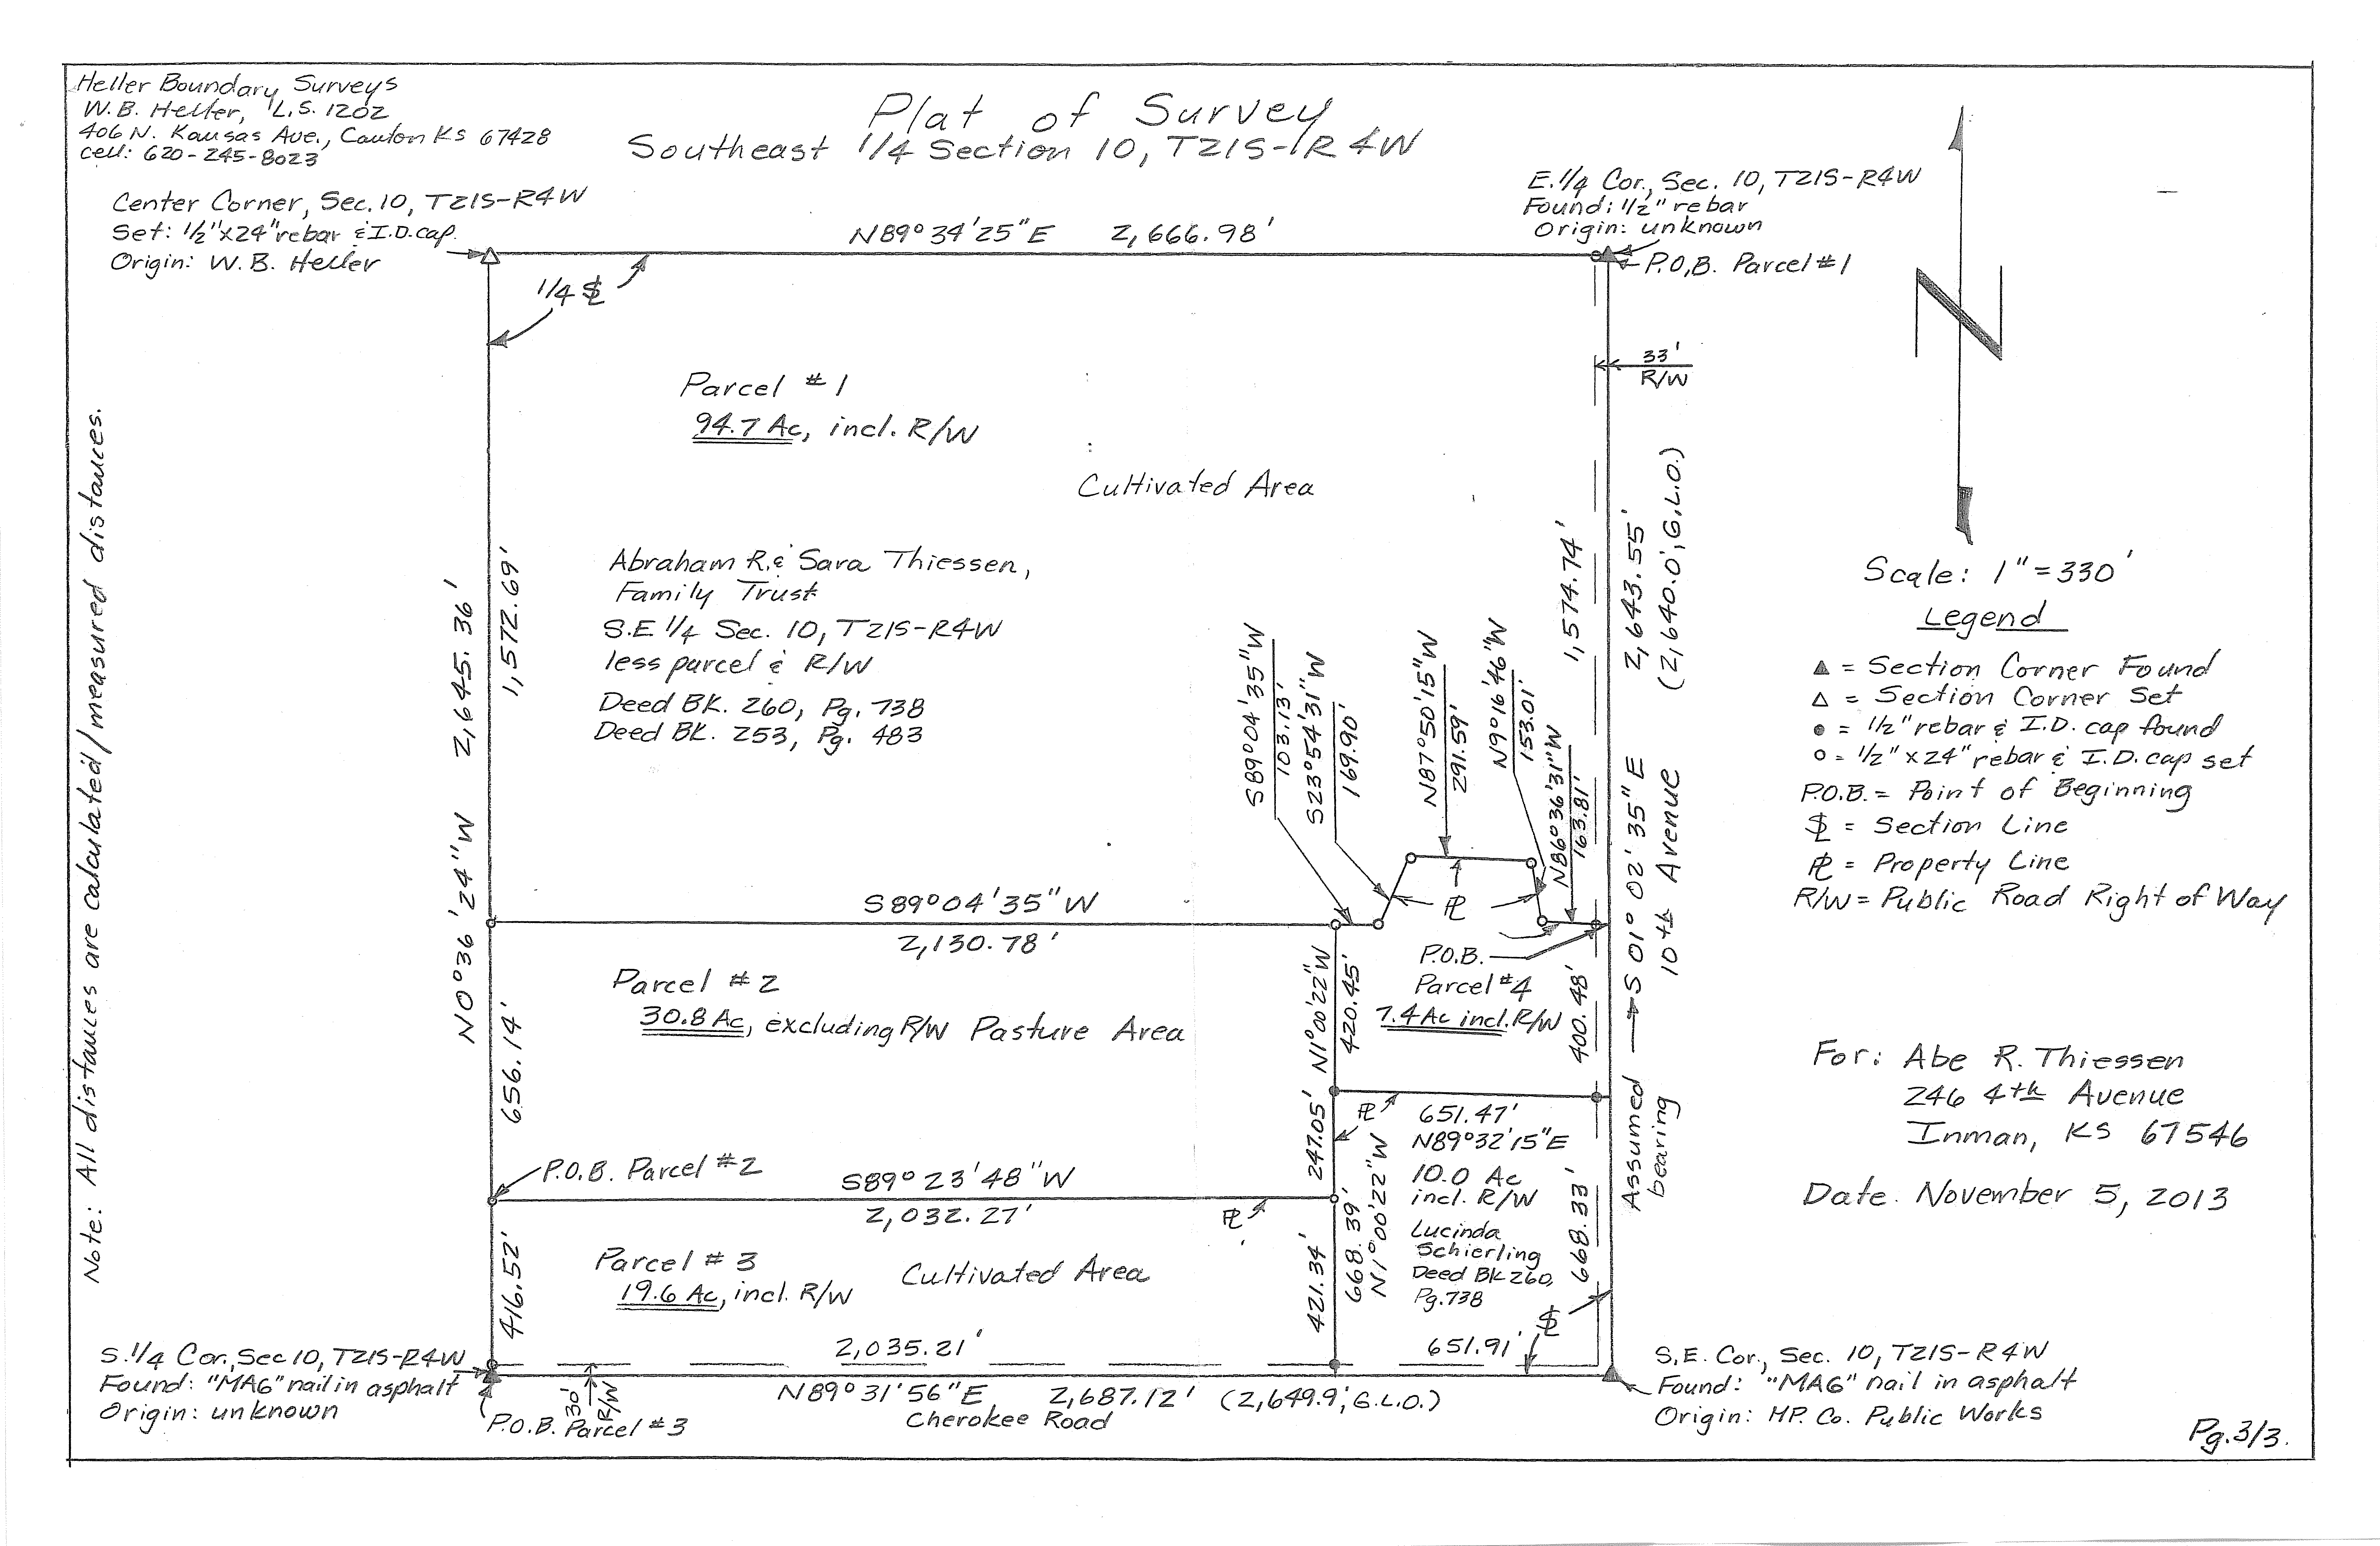 Heller Boundary Surveys
W.B. Heller, L.S. 1202
406 N. Kansas Ave., Canton KS 67428
cell: 620-245-8023
Plat of Survey
Southeast 1/4 Section 10, T21S-R4W
Center Corner, Sec. 10, T21S-R4W
Set: 1/2"x24" rebar & I.D. cap.
Origin: W. B. Heller
N89°34'25"E 2,666.98'
E. 1/4 Cor., Sec. 10, T21S-R4W
Found: 1/2" rebar
Origin: unknown
P.O.B. Parcel #1
1/4 SL
33'
R/W
N
Parcel #1
94.7 Ac, incl. R/W
Cultivated Area
Note: All distances are calculated/measured distances.
N0°36'24"W 2,645.36'
1,572.69'
Abraham R. & Sara Thiessen,
Family Trust
S.E 1/4 Sec. 10, T21S-R4W
less parcel & R/W
Deed BK. 260, Pg. 738
Deed BK. 253, Pg. 483
S89°04'35"W
103.13'
S23°54'31"W
169.90'
N87°50'15"W
291.59'
N9°16'46"W
153.01'
N86°36'31"W
163.81'
1,574.74'
Assumed bearing → S 01° 02' 35" E 2,643.55'
10th Avenue (2,640.0', G.L.O.)
Scale: 1"=330'
Legend
▲ = Section Corner Found
△ = Section Corner Set
● = 1/2" rebar & I.D. cap found
○ = 1/2" x 24" rebar & I.D. cap set
P.O.B. = Point of Beginning
SL = Section Line
PL = Property Line
R/W = Public Road Right of Way
S89°04'35"W
2,130.78'
PL
P.O.B.
Parcel #4
7.4 Ac incl. R/W
N1°00'22"W
420.45'
400.48'
Parcel #2
30.8 Ac, excluding R/W Pasture Area
656.14'
P.O.B. Parcel #2
S89°23'48"W
2,032.27'
PL
247.05'
PL
651.47'
N89°32'15"E
10.0 Ac
incl. R/W
Lucinda
Schierling
Deed BK 260,
Pg. 738
668.39'
N1°00'22"W
668.33'
SL
651.91'
421.34'
416.52'
Parcel #3
19.6 Ac, incl. R/W
Cultivated Area
2,035.21'
30'
R/W
N89°31'56"E 2,687.12' (2,649.9', G.L.O.)
Cherokee Road
S. 1/4 Cor., Sec 10, T21S-R4W
Found: "MAG" nail in asphalt
Origin: unknown
P.O.B. Parcel #3
S.E. Cor., Sec. 10, T21S-R4W
Found: "MAG" nail in asphalt
Origin: MP. Co. Public Works
For: Abe R. Thiessen
246 4th Avenue
Inman, KS 67546
Date. November 5, 2013
Pg. 3/3.